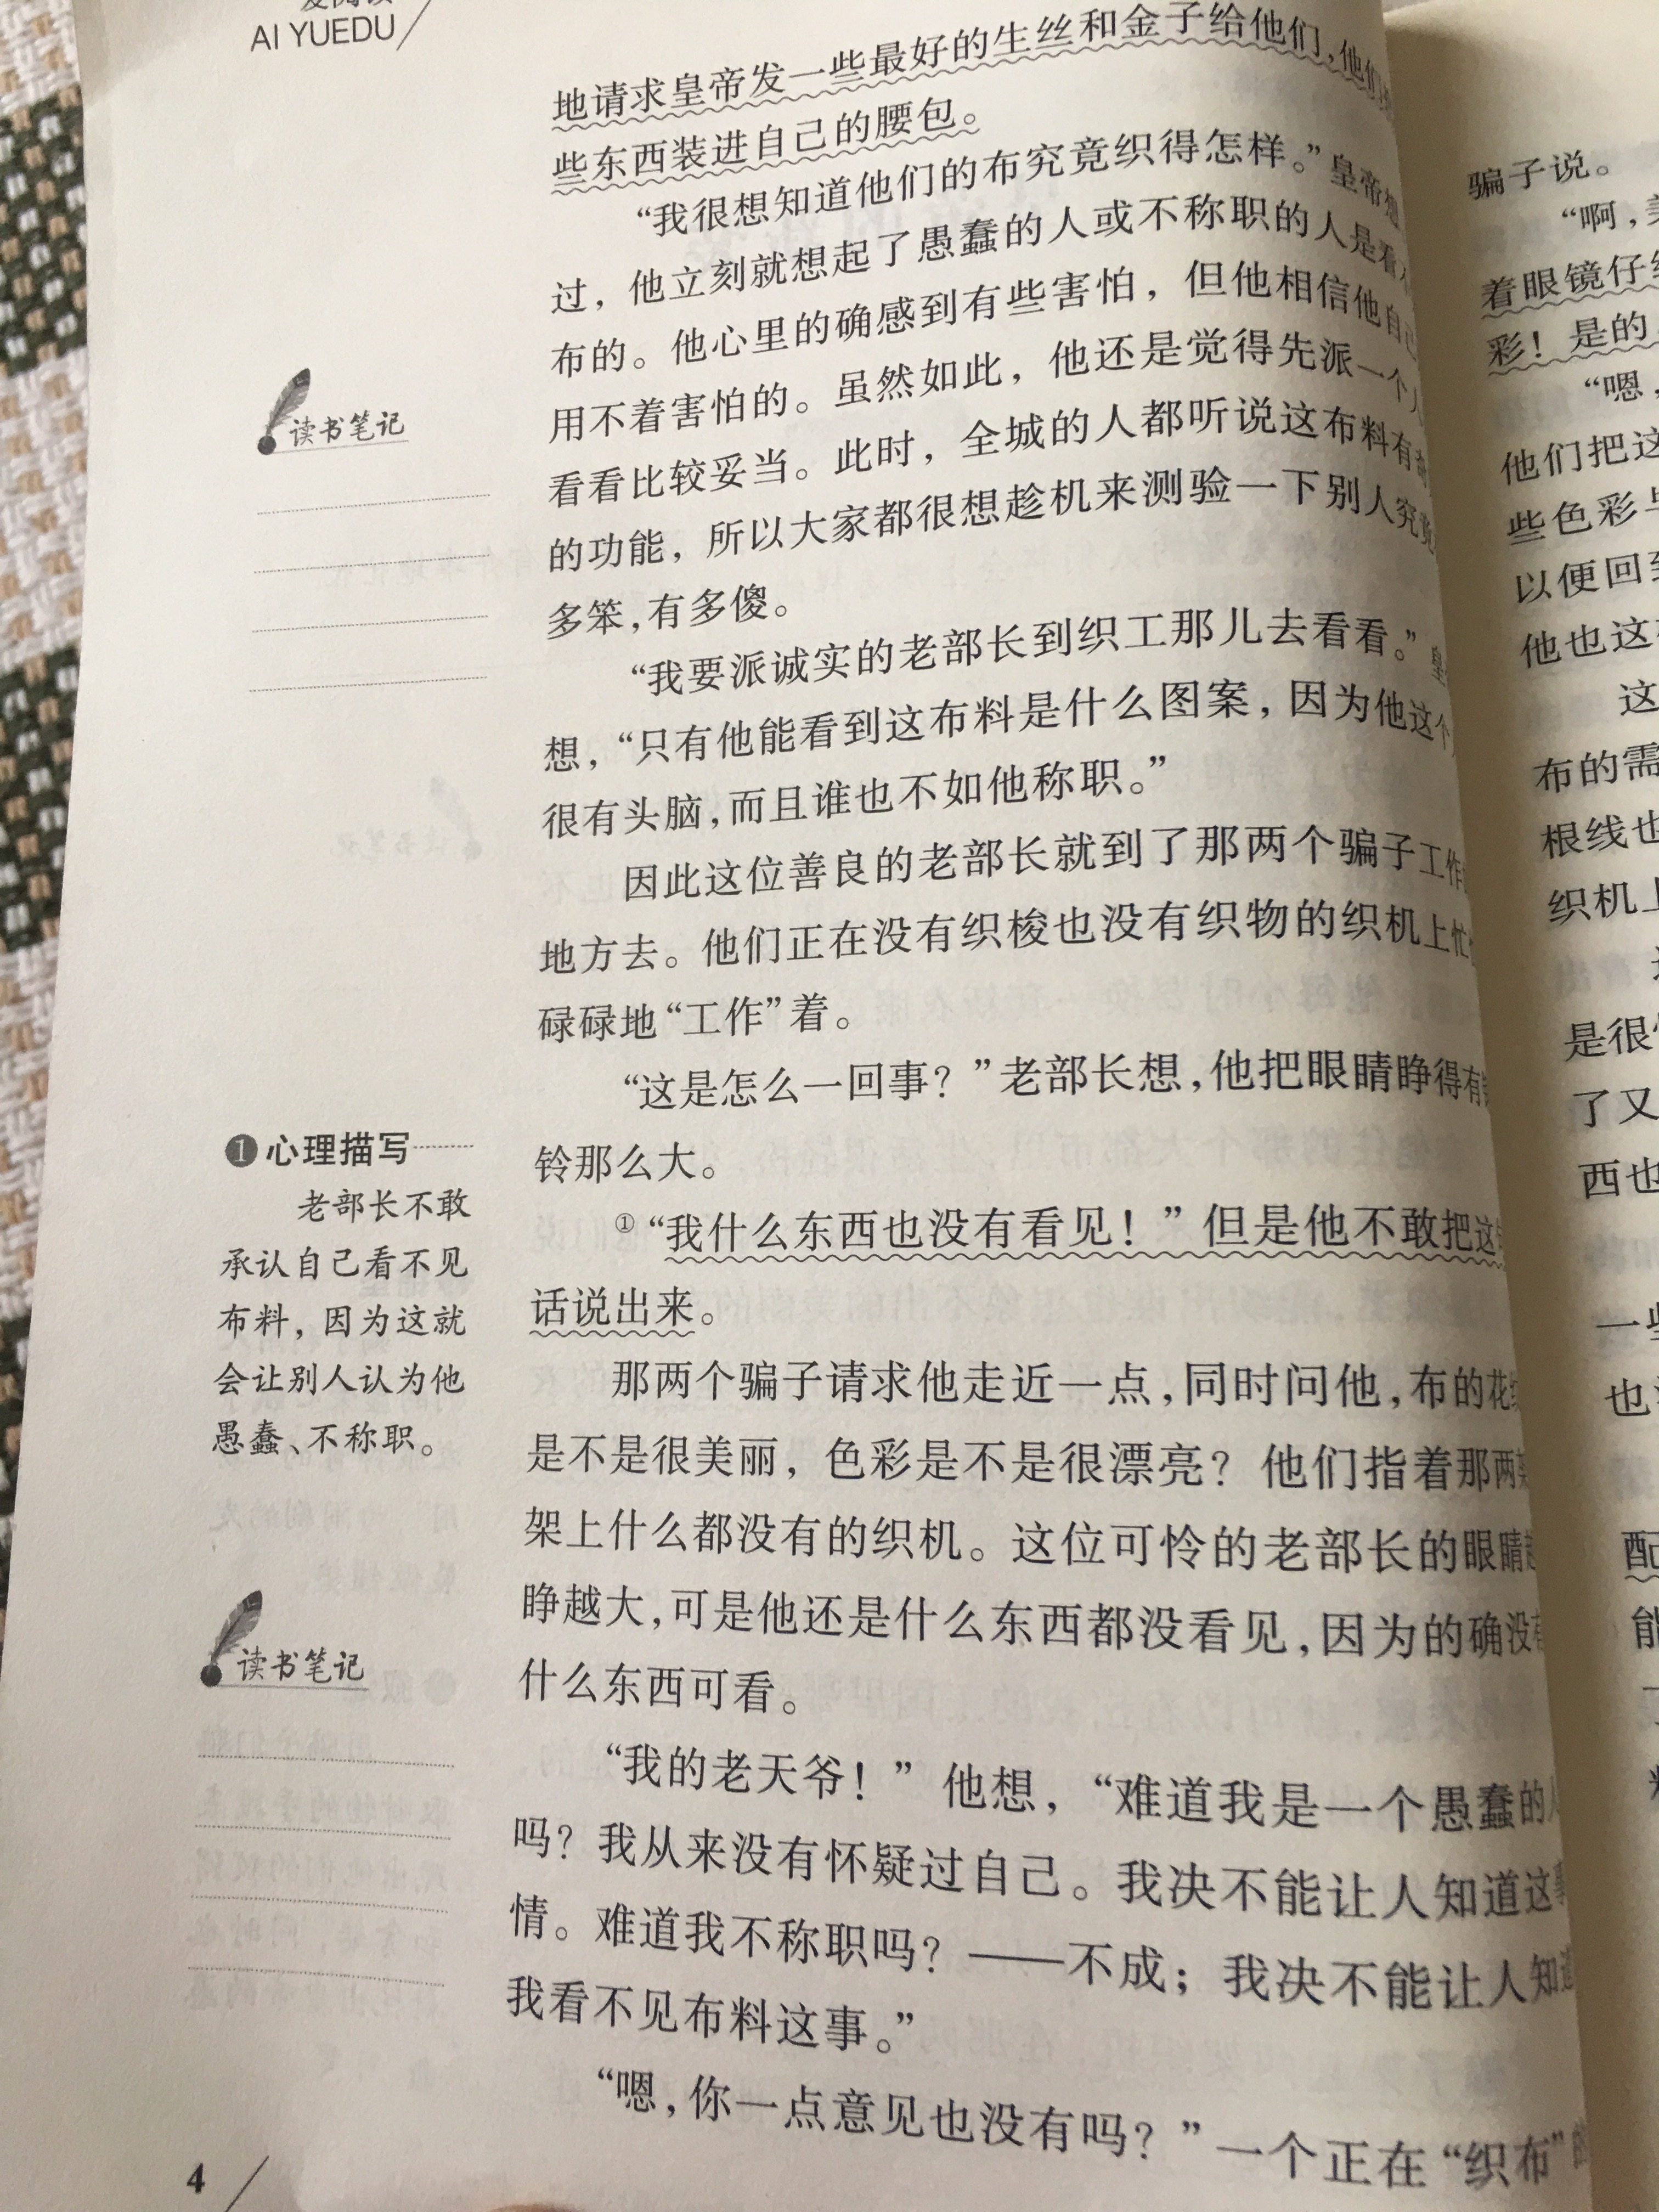 爱阅读
AI YUEDU
地请求皇帝发一些最好的生丝和金子给他们，他们
些东西装进自己的腰包。
“我很想知道他们的布究竟织得怎样。”皇帝想
过，他立刻就想起了愚蠢的人或不称职的人是看
布的。他心里的确感到有些害怕，但他相信他自己
用不着害怕的。虽然如此，他还是觉得先派一个
看看比较妥当。此时，全城的人都听说这布料有
的功能，所以大家都很想趁机来测验一下别人究竟
多笨，有多傻。
“我要派诚实的老部长到织工那儿去看看。”
想，“只有他能看到这布料是什么图案，因为他这个
很有头脑，而且谁也不如他称职。”
因此这位善良的老部长就到了那两个骗子工作
地方去。他们正在没有织梭也没有织物的织机上忙
碌碌地“工作”着。
“这是怎么一回事？”老部长想，他把眼睛睁得有
铃那么大。
①“我什么东西也没有看见！”但是他不敢把这
话说出来。
那两个骗子请求他走近一点，同时问他，布的花
是不是很美丽，色彩是不是很漂亮？他们指着那两
架上什么都没有的织机。这位可怜的老部长的眼睛
睁越大，可是他还是什么东西都没看见，因为的确没有
什么东西可看。
“我的老天爷！”他想，“难道我是一个愚蠢的人
吗？我从来没有怀疑过自己。我决不能让人知道这
情。难道我不称职吗？——不成；我决不能让人知道
我看不见布料这事。”
“嗯，你一点意见也没有吗？”一个正在“织布”
读书笔记
❶心理描写
老部长不敢
承认自己看不见
布料，因为这就
会让别人认为他
愚蠢、不称职。
读书笔记
4
骗子说。
“啊，
着眼镜仔
彩！是的
“嗯，
他们把这
些色彩
以便回
他也这
这
布的需
根线也
织机上
是很
了又
西也
一些
也
配
能